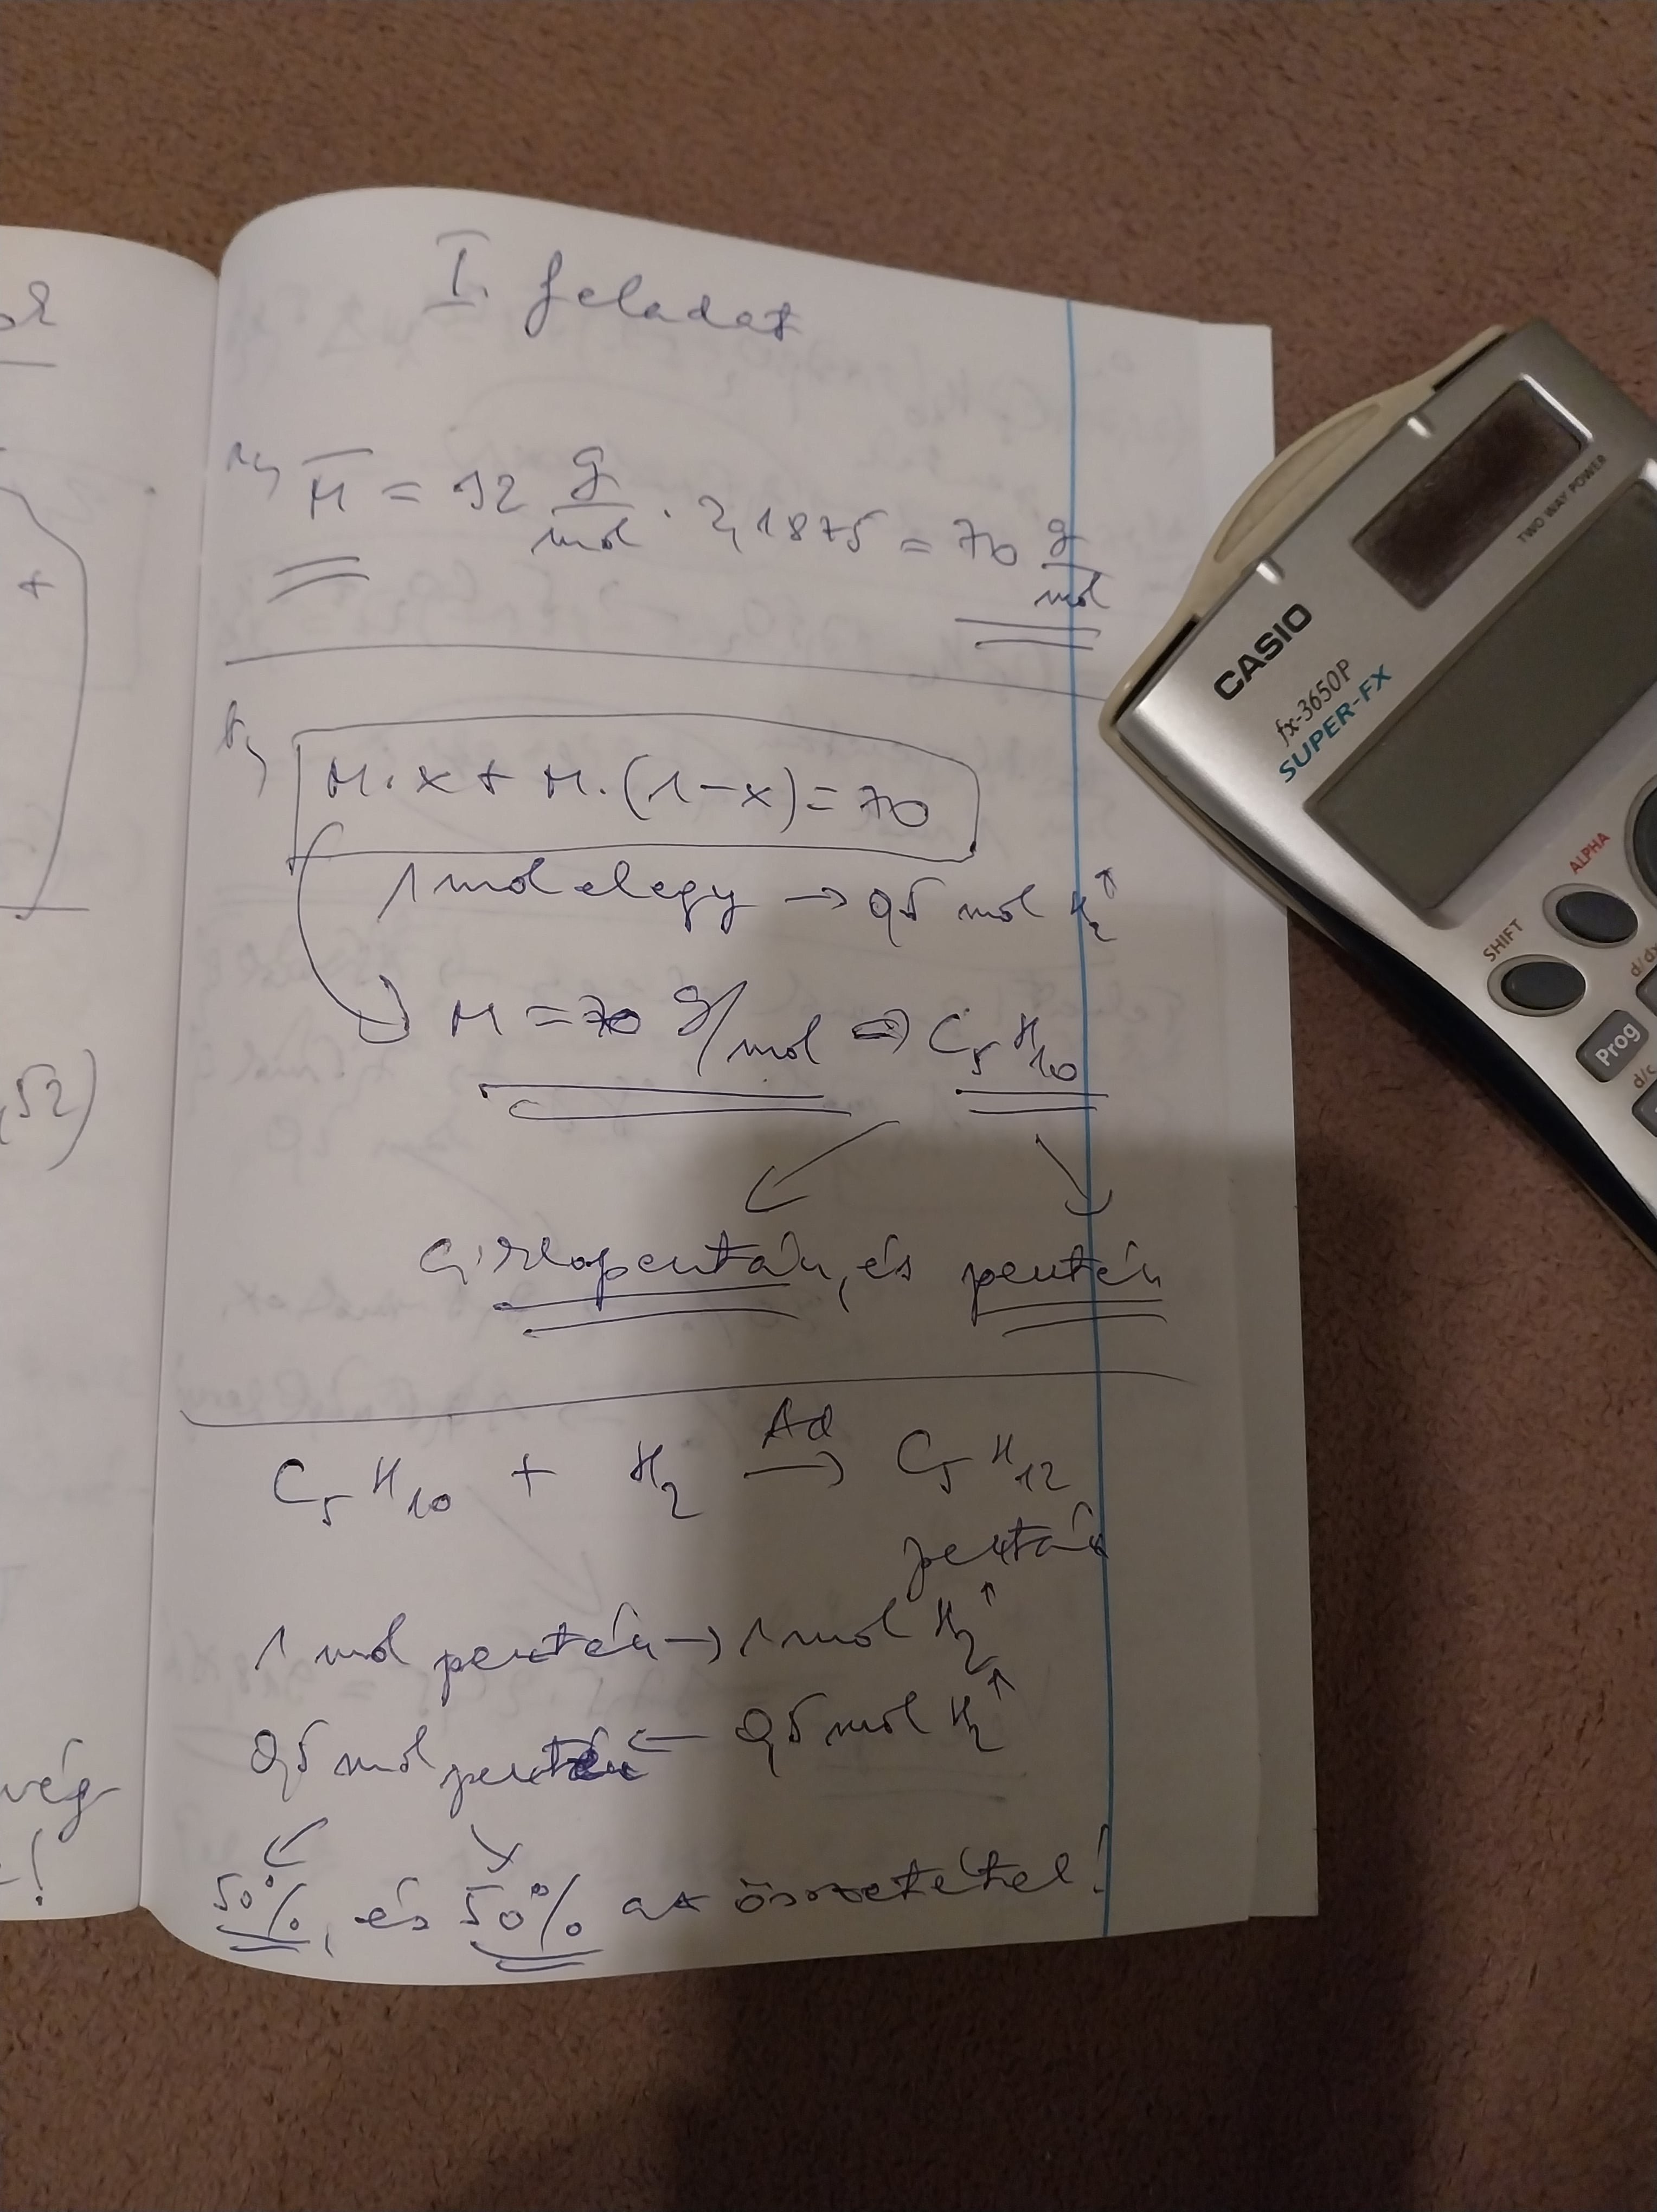 I. feladat
a, M = 32 g/mol · 2,1875 = 70 g/mol
b, M·x + M·(1-x) = 70
1 mol elegy → 0,5 mol H2↑
M = 70 g/mol ⇒ C5H10
ciklopentán, és pentén
C5H10 + H2 Ad → C5H12
pentán
1 mol pentén → 1 mol H2↑
0,5 mol pentén ← 0,5 mol H2↑
50%, és 50% az összetétel!
+
,52)
vég
!
CASIO
fx-3650P
SUPER-FX
TWO WAY POWER
ALPHA
SHIFT
d/dx
Prog
d/c